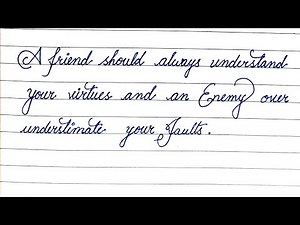 A friend should always understand
your virtues and an Enemy over
understimate your faults.